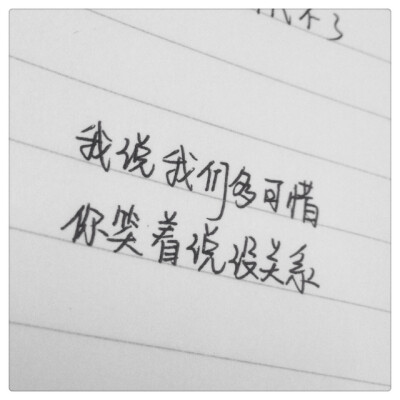 不了
我说我们多可惜
你笑着说没关系